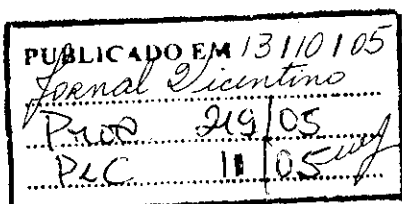 PUBLICADO EM 13/10/05
Jornal Vicentino
Proc 219/05
PLC 11/05